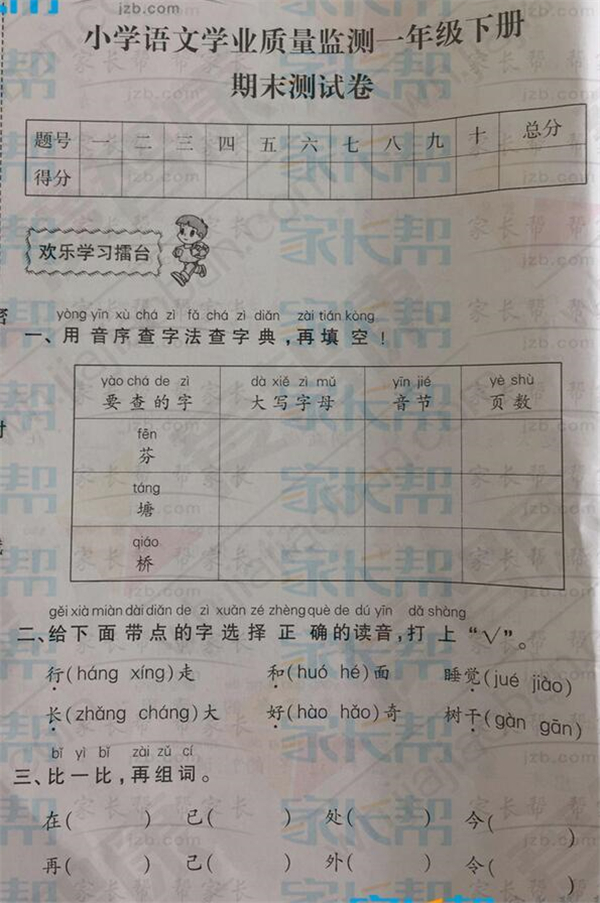 jzb.com
小学语文学业质量监测一年级下册
期末测试卷
题号 一 二 三 四 五 六 七 八 九 十 总分
得分
欢乐学习擂台
yòng yīn xù chá zì fǎ chá zì diǎn zài tián kòng
一、用音序查字法查字典,再填空!
yào chá de zì dà xiě zì mǔ yīn jié yè shù
要查的字 大写字母 音节 页数
fēn
芬
táng
塘
qiáo
桥
gěi xià miàn dài diǎn de zì xuǎn zé zhèng què de dú yīn dǎ shàng
二、给下面带点的字选择正确的读音,打上“√”。
行(háng xíng)走 和(huó hé)面 睡觉(jué jiào)
长(zhǎng cháng)大 好(hào hǎo)奇 树干(gàn gān)
bǐ yì bǐ zài zǔ cí
三、比一比,再组词。
在( ) 已( ) 处( ) 今( )
再( ) 己( ) 外( ) 令( )